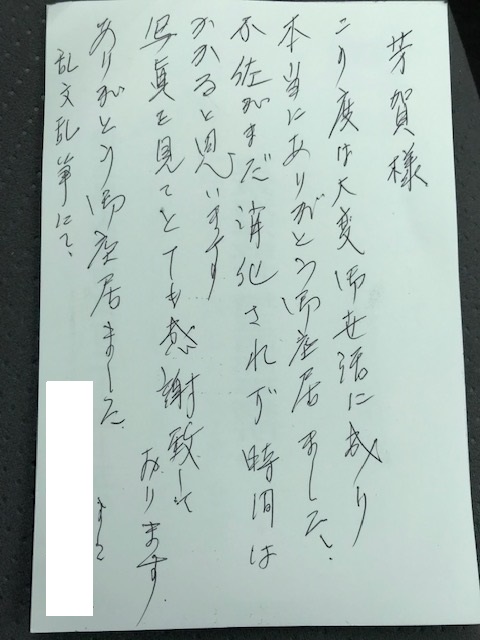 芳賀様
この度は大変御世話に成り
本当にありがとう御座居ました。
不佐がまだ消化されず時間は
かかると思います
写真を見てとても感謝致して
おります
ありがとう御座居ました。
乱文乱筆にて、